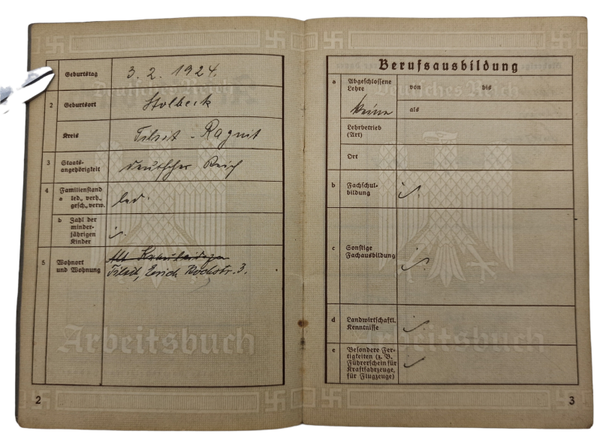 1 Geburtstag 3. 2. 1924.
2 Geburtsort
Kreis Tilsit - Ragnit
3 Staats-
angehörigkeit Deutsches Reich
4 Familienstand
a led., verh.,
gesch., verw. led.
b Zahl der
minder-
jährigen
Kinder
5 Wohnort
und Wohnung
Tilsit, 3.
Deutsches Reich
Arbeitsbuch
2
Berufsausbildung
a Abgeschlossene
Lehre von bis
keine als
Lehrbetrieb
(Art)
Ort
b Fachschul-
bildung
c Sonstige
Fachausbildung
d Landwirtschaftl.
Kenntnisse
e Besondere Fer-
tigkeiten (z. B.
Führerschein für
Kraftfahrzeuge,
für Flugzeuge)
Deutsches Reich
Arbeitsbuch
3